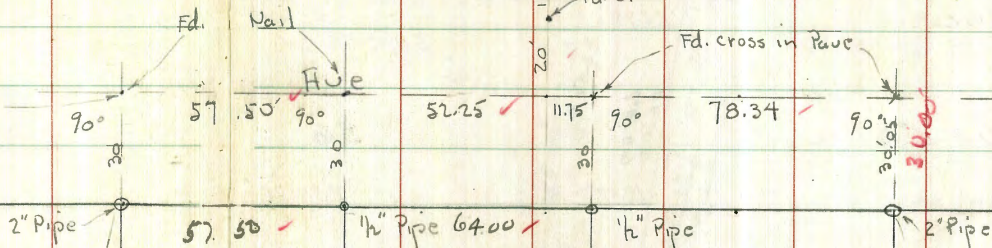 Fd. Nail
20'
Fd. cross in Pave
Ave
90° 57.50' 90° 52.25 11.75 90° 78.34 90°
30 30 30 30.05 30.00'
2" Pipe 57.50 1½" Pipe 64.00 ½" Pipe 2" Pipe